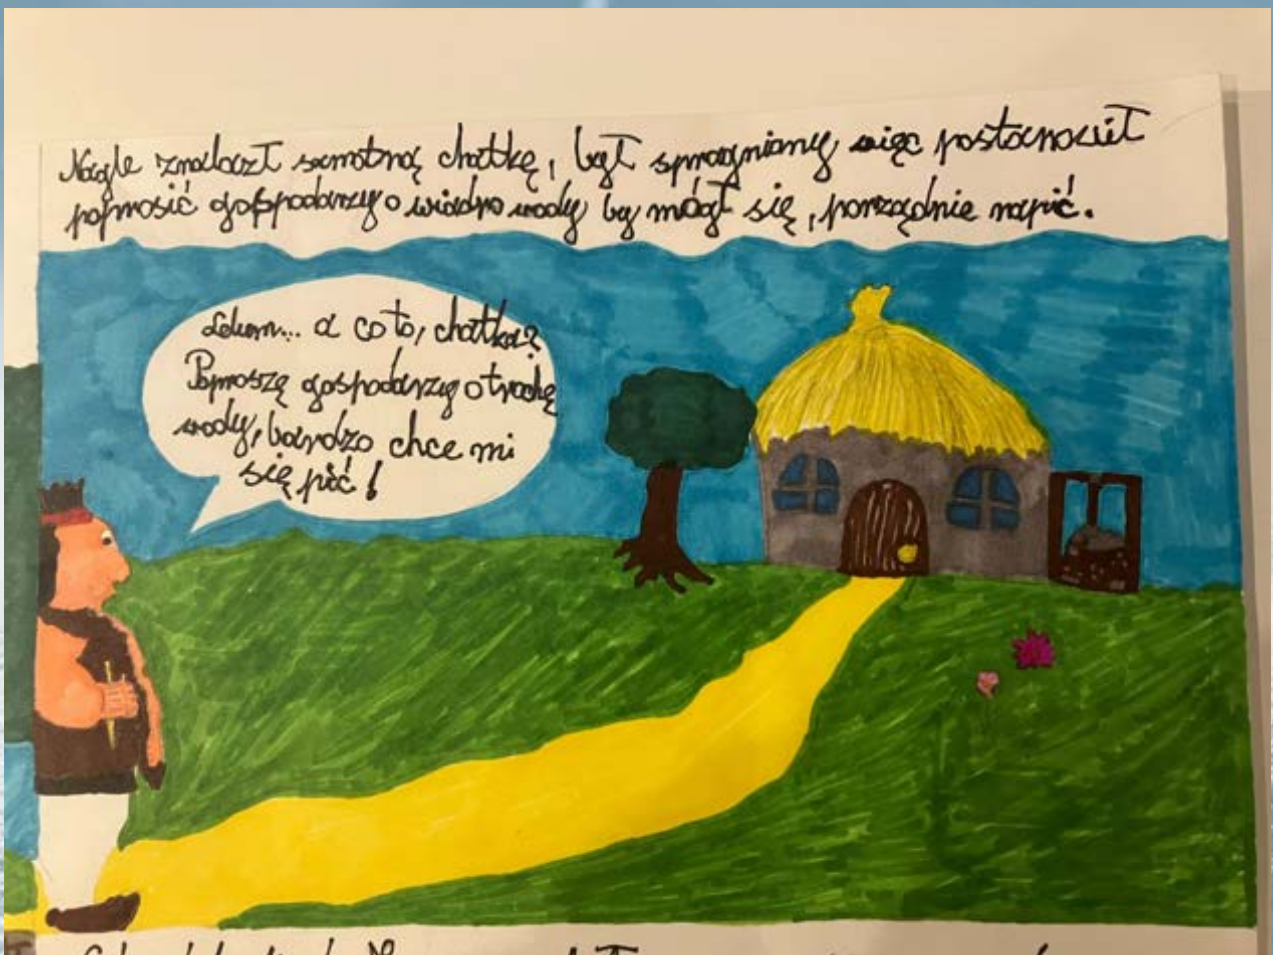 Nagle znalazł samotną chatkę, był spragniany więc postanowił
poprosić gospodarzy o wiadro wody by mógł się, porządnie napić.
a co to, chatka?
Poproszę gospodarzy o trochę
wody, bardzo chce mi
się pić!